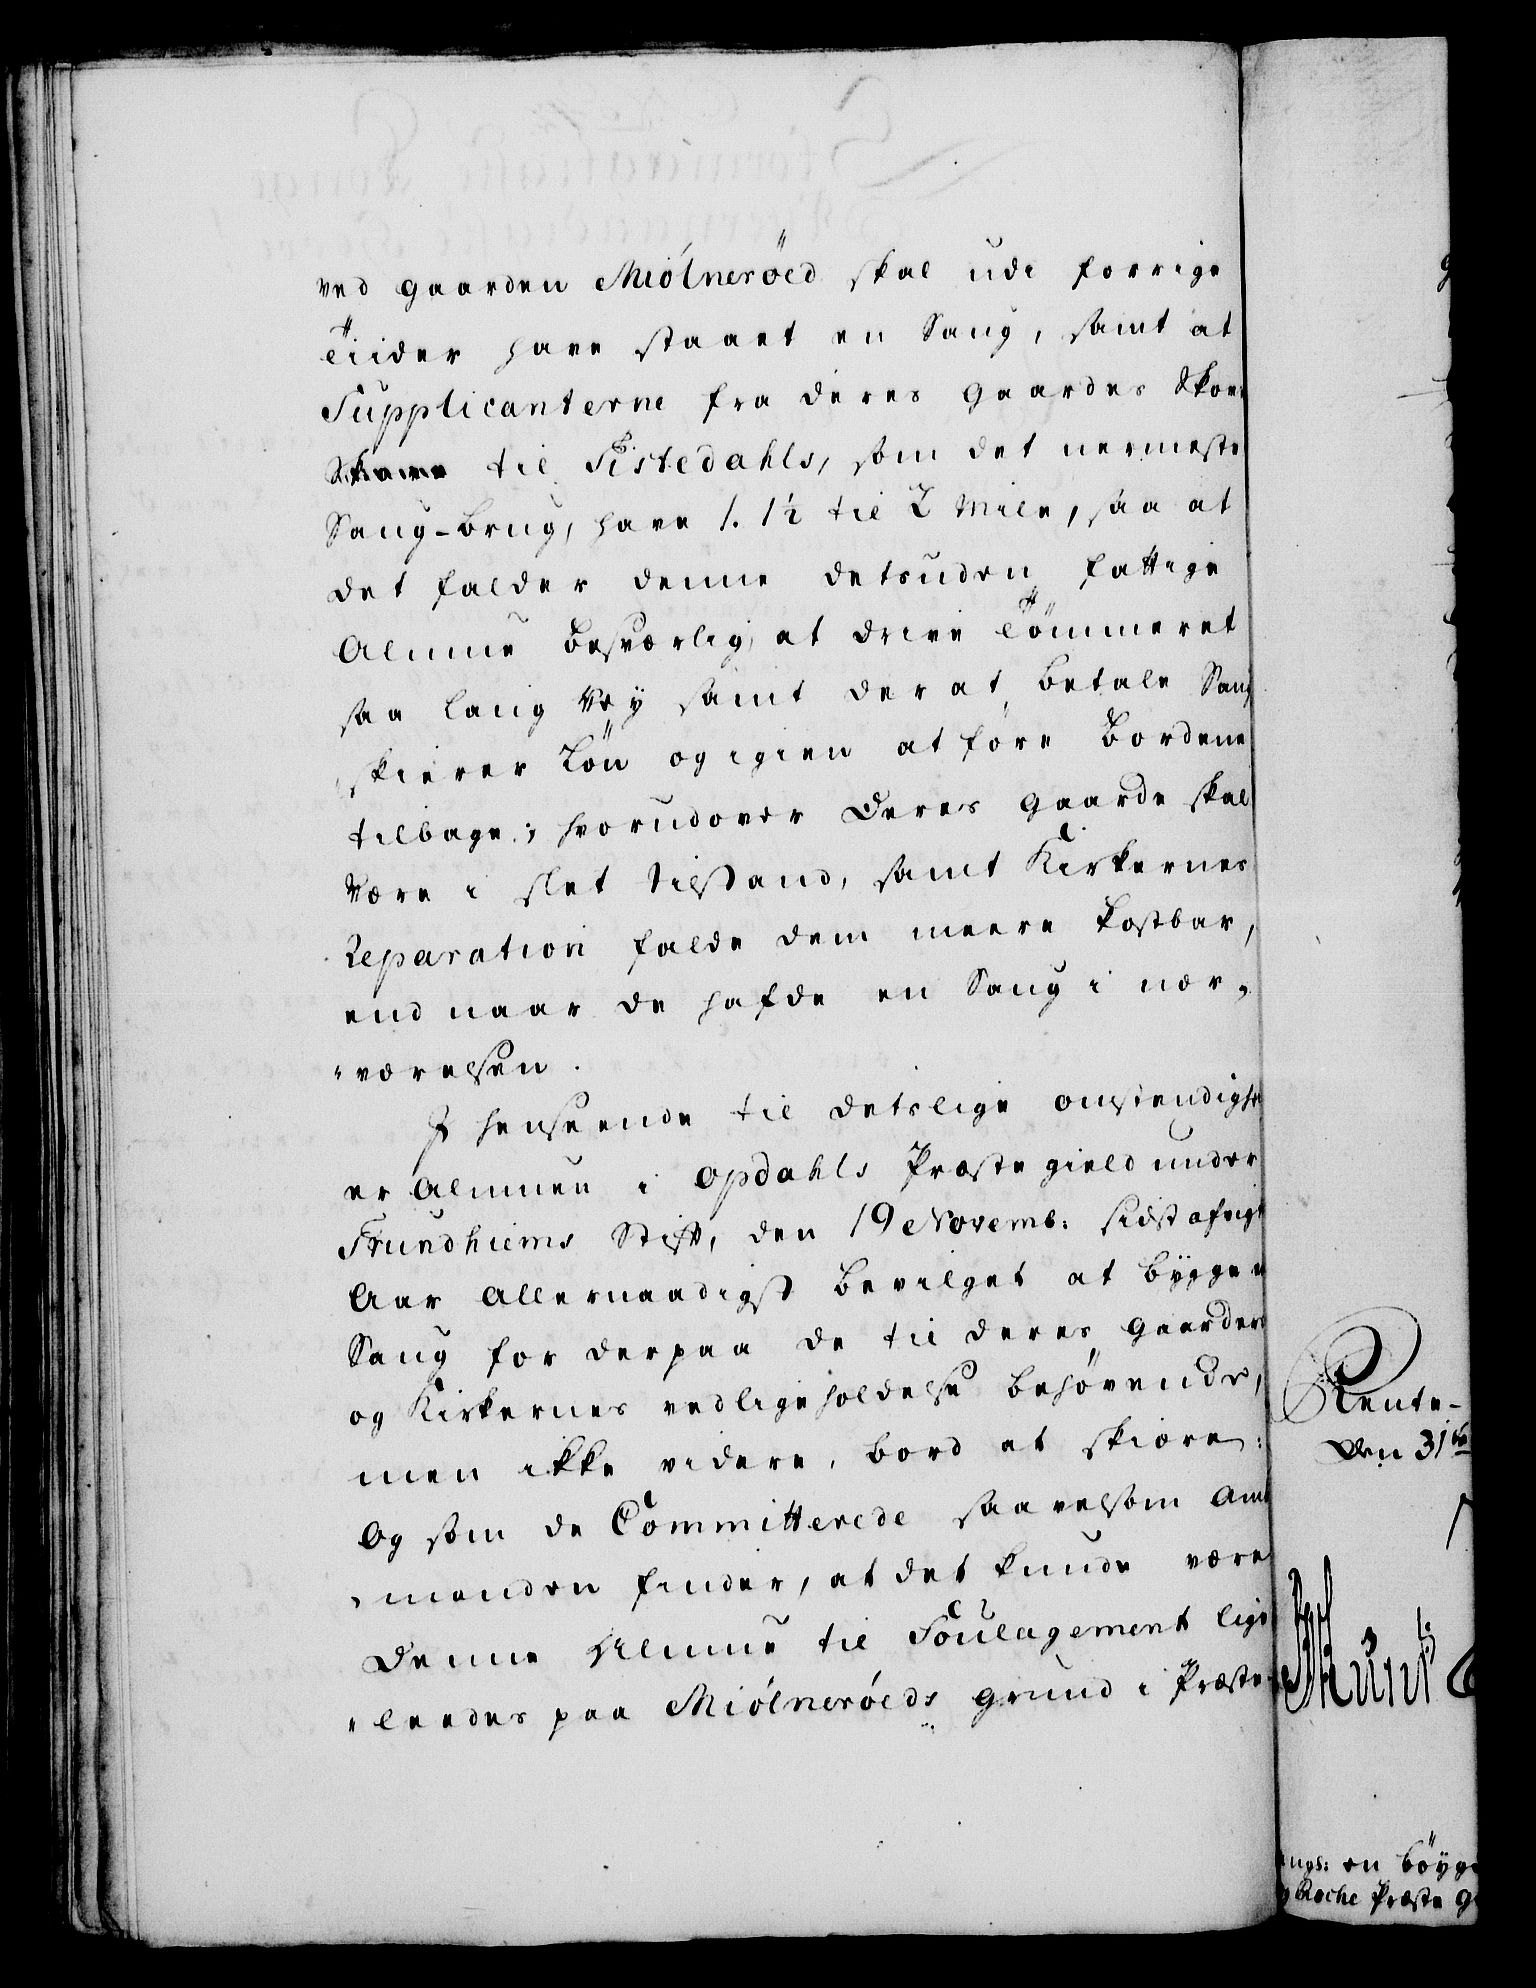 ved gaarden Miölneröed skal udi forrige
Tiider have staaet en Saug, samt at
Supplicanterne fra deres Gaardes Skove
til Tistedahls, som det nermeste
Saug-Brug, have 1. 1½ til 2 Mile, saa at
det falder denne detsuden fattige
Almue besværlig at drive Tömmeret
saa lang Vey samt der at betale Saug
skierer Lön og igien at före Bordene
tilbage; hvorudover deres Gaarde skal
være i slet tilstand, samt Kirkernes
Reparation falde dem meere kostbar,
end naar de hafde en Saug i nær-
værelsen.
I henseende til detslige omstendighed
er Almuen i Opdahls Præstegield under
Trundhiems Stift, den 19 Novemb: sidstafvigt
Aar Allernaadigst bevilget at bygge en
Saug for derpaa de til deres Gaarders
og Kirkernes vedligeholdelse behøvende,
men ikke videre, bord at skiære:
Og som de Committerede saavelsom Amt
manden finder, at det kunde være
denne Almue til Soulagement lige
leedes paa Miölneröeds grund i Præste-
Rente-
den 31te
en böyg
Præste g